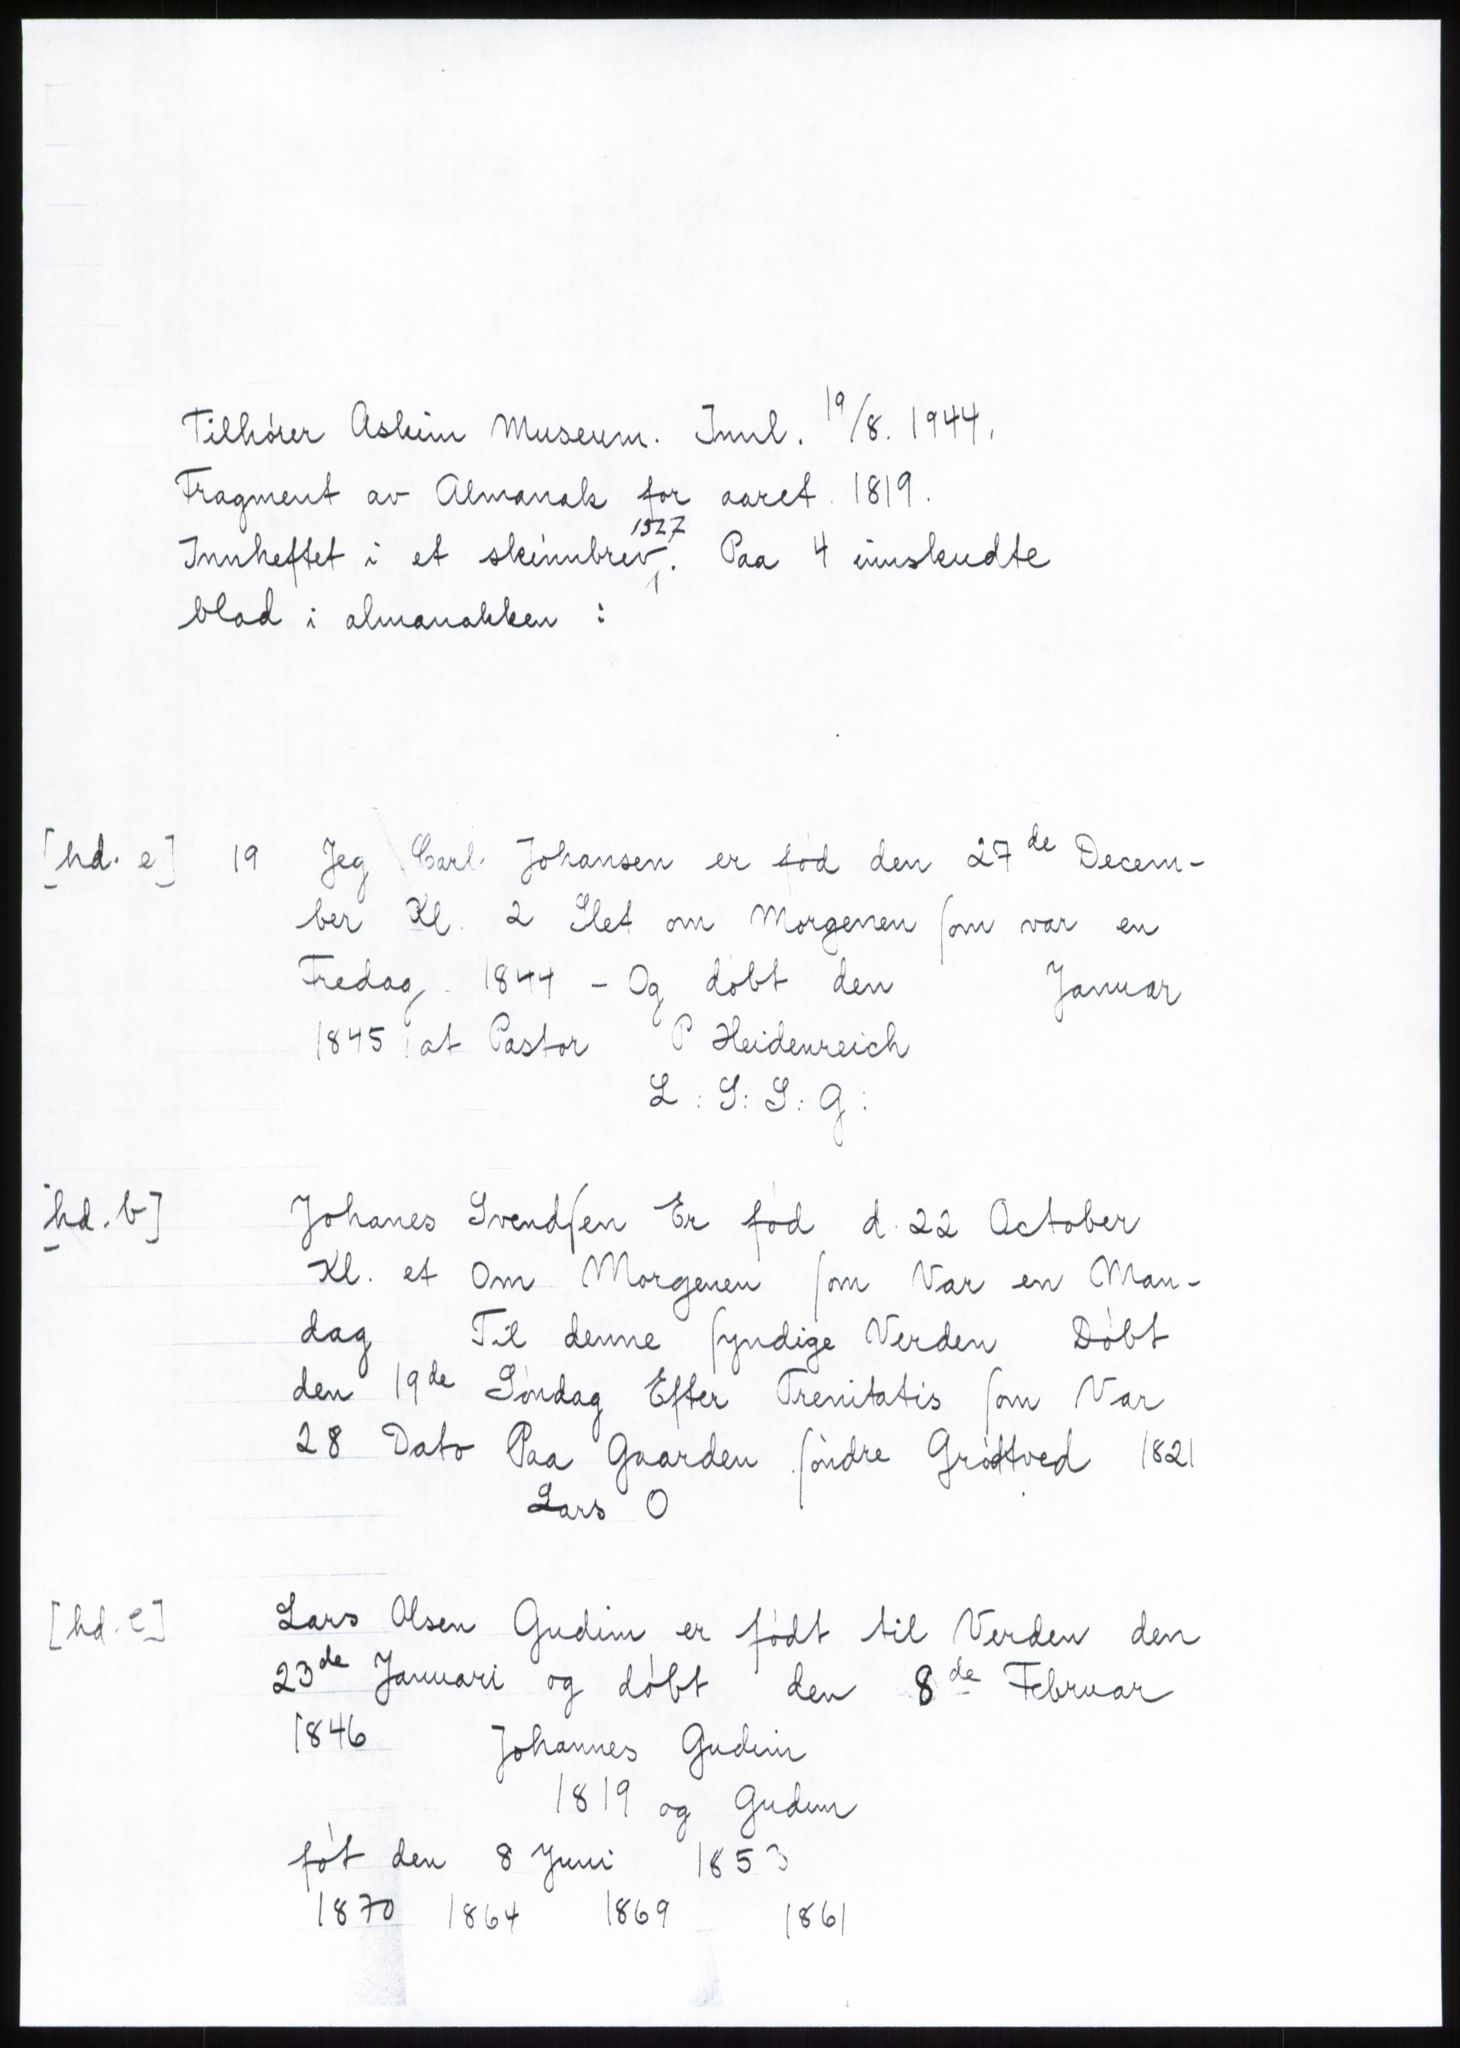 Tilhører Askim Museum. Innl. 19/8. 1944.
Fragment av Almanak for aaret 1819.
Innheftet i et skinnbrev 1527. Paa 4 innskudte
blad i almanakken :
[hd. e] 19 Jeg Carl Johansen er fød den 27de Decem-
ber Kl. 2 Slet om Morgenen ſom var en
Fredag 1844 - Og døbt den Januar
1845 at Pastor P Heidenreich
L : S : S : G :
[hd. b] Johanes Svendſen Er fød d. 22 October
Kl. et Om Morgenen ſom Var en Man-
dag Til denne ſyndige Verden Døbt
den 19de Søndag Efter Trenitatis ſom Var
28 Dato Paa Gaarden ſøndre Grødtved 1821
Lars O
[hd. e] Lars Olsen Gudim er født til Verden den
23de Januari og døbt den 8de Februar
1846 Johannes Gudim
1819 og Gudim
føt den 8 Juni 1853
1870 1864 1869 1861